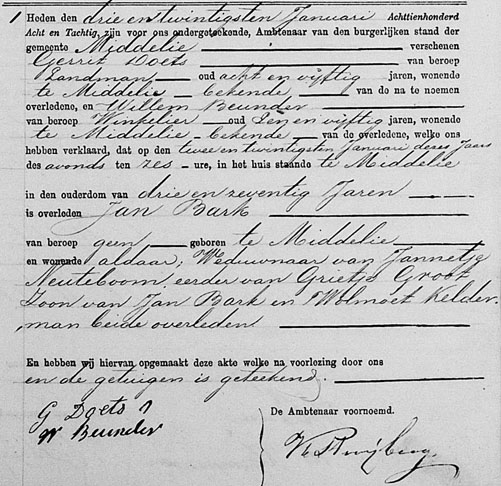 1 Heden den drie en twintigsten Januari Achttienhonderd
Acht en Tachtig, zijn voor ons ondergeteekende, Ambtenaar van den burgerlijken stand der
gemeente Middelie verschenen
Gerrit Doets van beroep
Landman, oud acht en vijftig jaren, wonende
te Middelie bekende van de na te noemen
overledene, en Willem Beunder
van beroep Winkelier oud Een en vijftig jaren, wonende
te Middelie bekende van de overledene, welke ons
hebben verklaard, dat op den twee en twintigsten Januari dezes Jaars
des avonds ten zes ure, in het huis staande te Middelie
in den ouderdom van drie en zeventig Jaren
is overleden Jan Bark
van beroep geen geboren te Middelie
en wonende aldaar; Weduwnaar van Jannetje
Neuteboom, eerder van Grietje Groot
Zoon van Jan Bark en Wolmoet Kelder
man beide overleden
En hebben wij hiervan opgemaakt deze akte welke na voorlezing door ons
en de getuigen is geteekend.
G Doets
W Beunder
De Ambtenaar voornoemd.